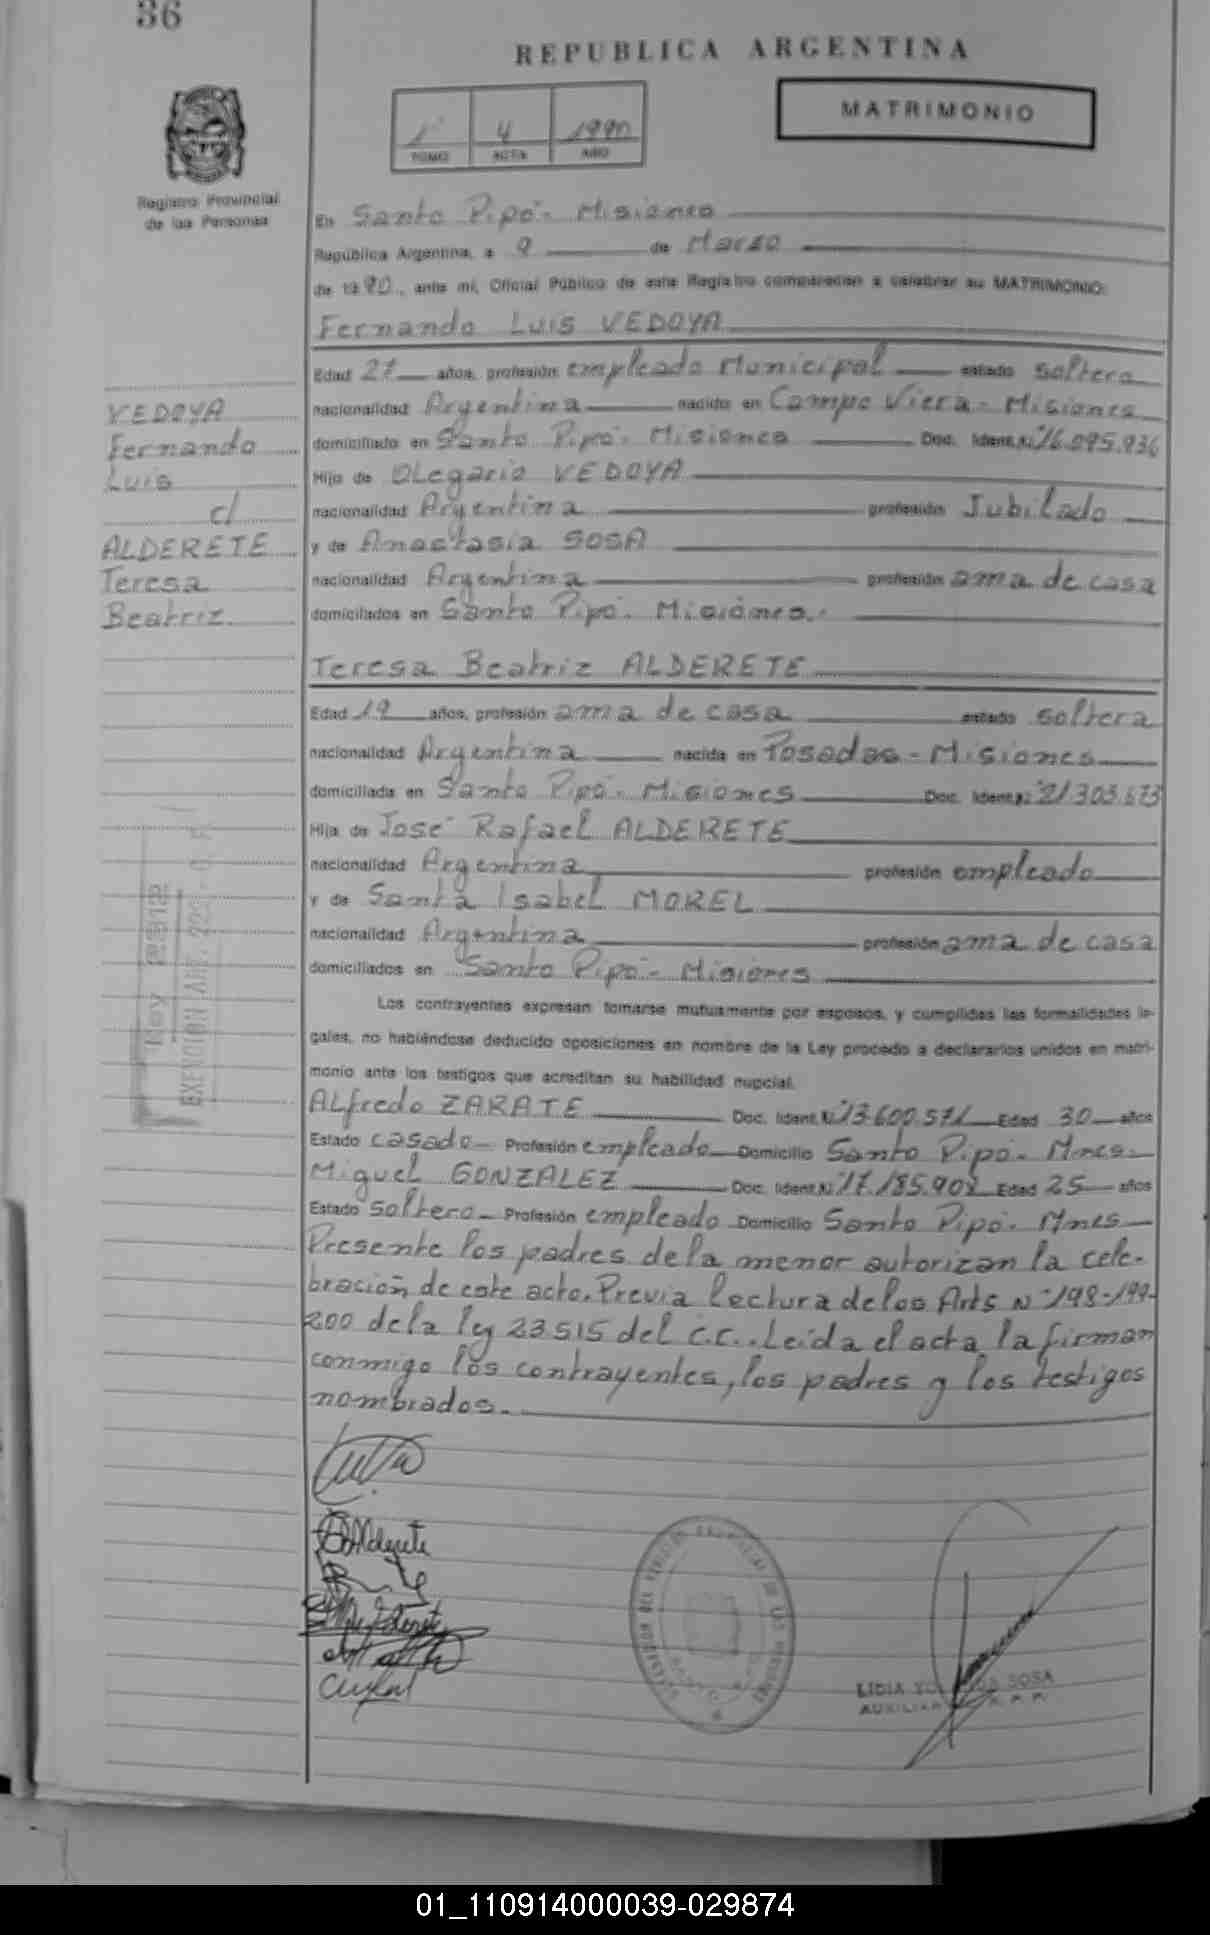 36
REPUBLICA ARGENTINA
MATRIMONIO
1° 4 1990
TOMO ACTA AÑO
Registro Provincial
de las Personas
En Santo Pipó - Misiones
República Argentina, a 9 de Marzo
de 1990, ante mí, Oficial Público de este Registro comparecen a celebrar su MATRIMONIO:
Fernando Luis VEDOYA
Edad 27 años, profesión empleado Municipal estado soltero
nacionalidad Argentina nacido en Campo Viera - Misiones
domiciliado en Santo Pipó - Misiones Doc. Ident. N° 16.095.936
Hijo de Olegario VEDOYA
nacionalidad Argentina profesión Jubilado
y de Anastasia SOSA
nacionalidad Argentina profesión ama de casa
domiciliados en Santo Pipó - Misiones.
VEDOYA
Fernando
Luis
c/
ALDERETE
Teresa
Beatriz.
Teresa Beatriz ALDERETE
Edad 19 años, profesión ama de casa estado soltera
nacionalidad Argentina nacida en Posadas - Misiones
domiciliada en Santo Pipó - Misiones Doc. Ident. N° 21.303.673
Hija de José Rafael ALDERETE
nacionalidad Argentina profesión empleado
y de Santa Isabel MOREL
nacionalidad Argentina profesión ama de casa
domiciliados en Santo Pipó - Misiones
Ley
EXENCION ART.
Los contrayentes expresan tomarse mutuamente por esposos, y cumplidas las formalidades le-
gales, no habiéndose deducido oposiciones en nombre de la Ley procedo a declararlos unidos en matri-
monio ante los testigos que acreditan su habilidad nupcial.
Alfredo ZARATE Doc. Ident. N° 13.600.571 Edad 30 años
Estado casado Profesión empleado Domicilio Santo Pipó - Mnes.
Miguel GONZALEZ Doc. Ident. N° 17.185.908 Edad 25 años
Estado soltero Profesión empleado Domicilio Santo Pipó - Mnes
Presente los padres de la menor autorizan la cele-
bración de este acto. Previa lectura de los Arts N° 198-199-
200 de la ley 23515 del C.C.. Leída el acta la firman
conmigo los contrayentes, los padres y los testigos
nombrados.
Alderete
LIDIA SOSA
AUXILIAR
01_110914000039-029874